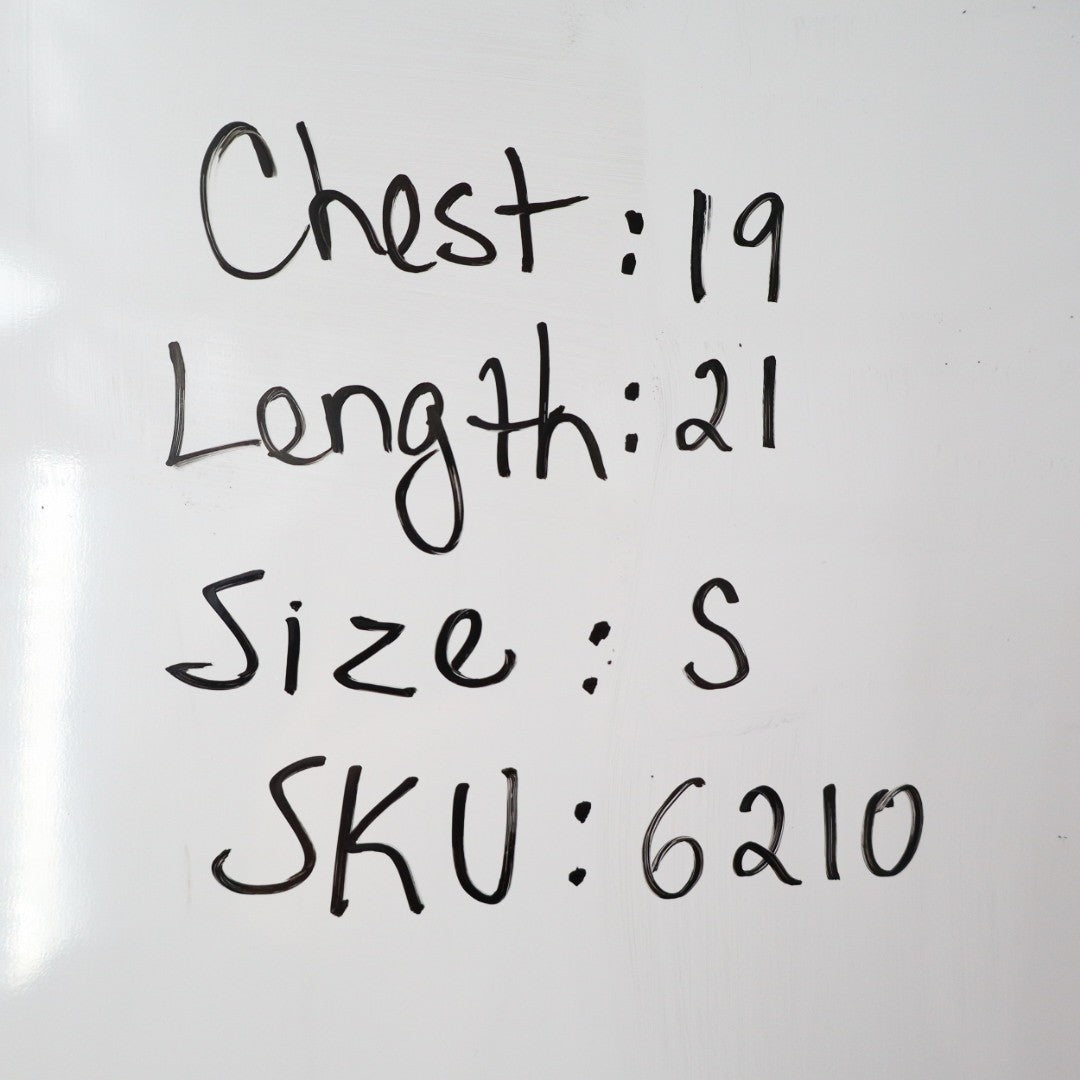 Chest: 19
Length: 21
Size: S
SKU: 6210